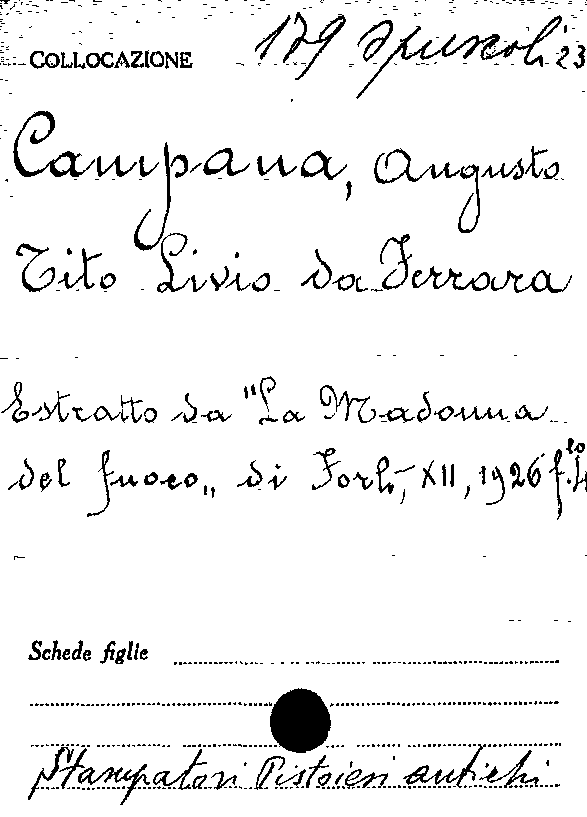 COLLOCAZIONE 179 Opuscoli 23
Campana, Augusto
Tito Livio da Ferrara
Estratto da "La Madonna
del fuoco„ di Forlì, XII, 1926 f.lo 4
Schede figlie
Stampatori Pistoiesi antichi